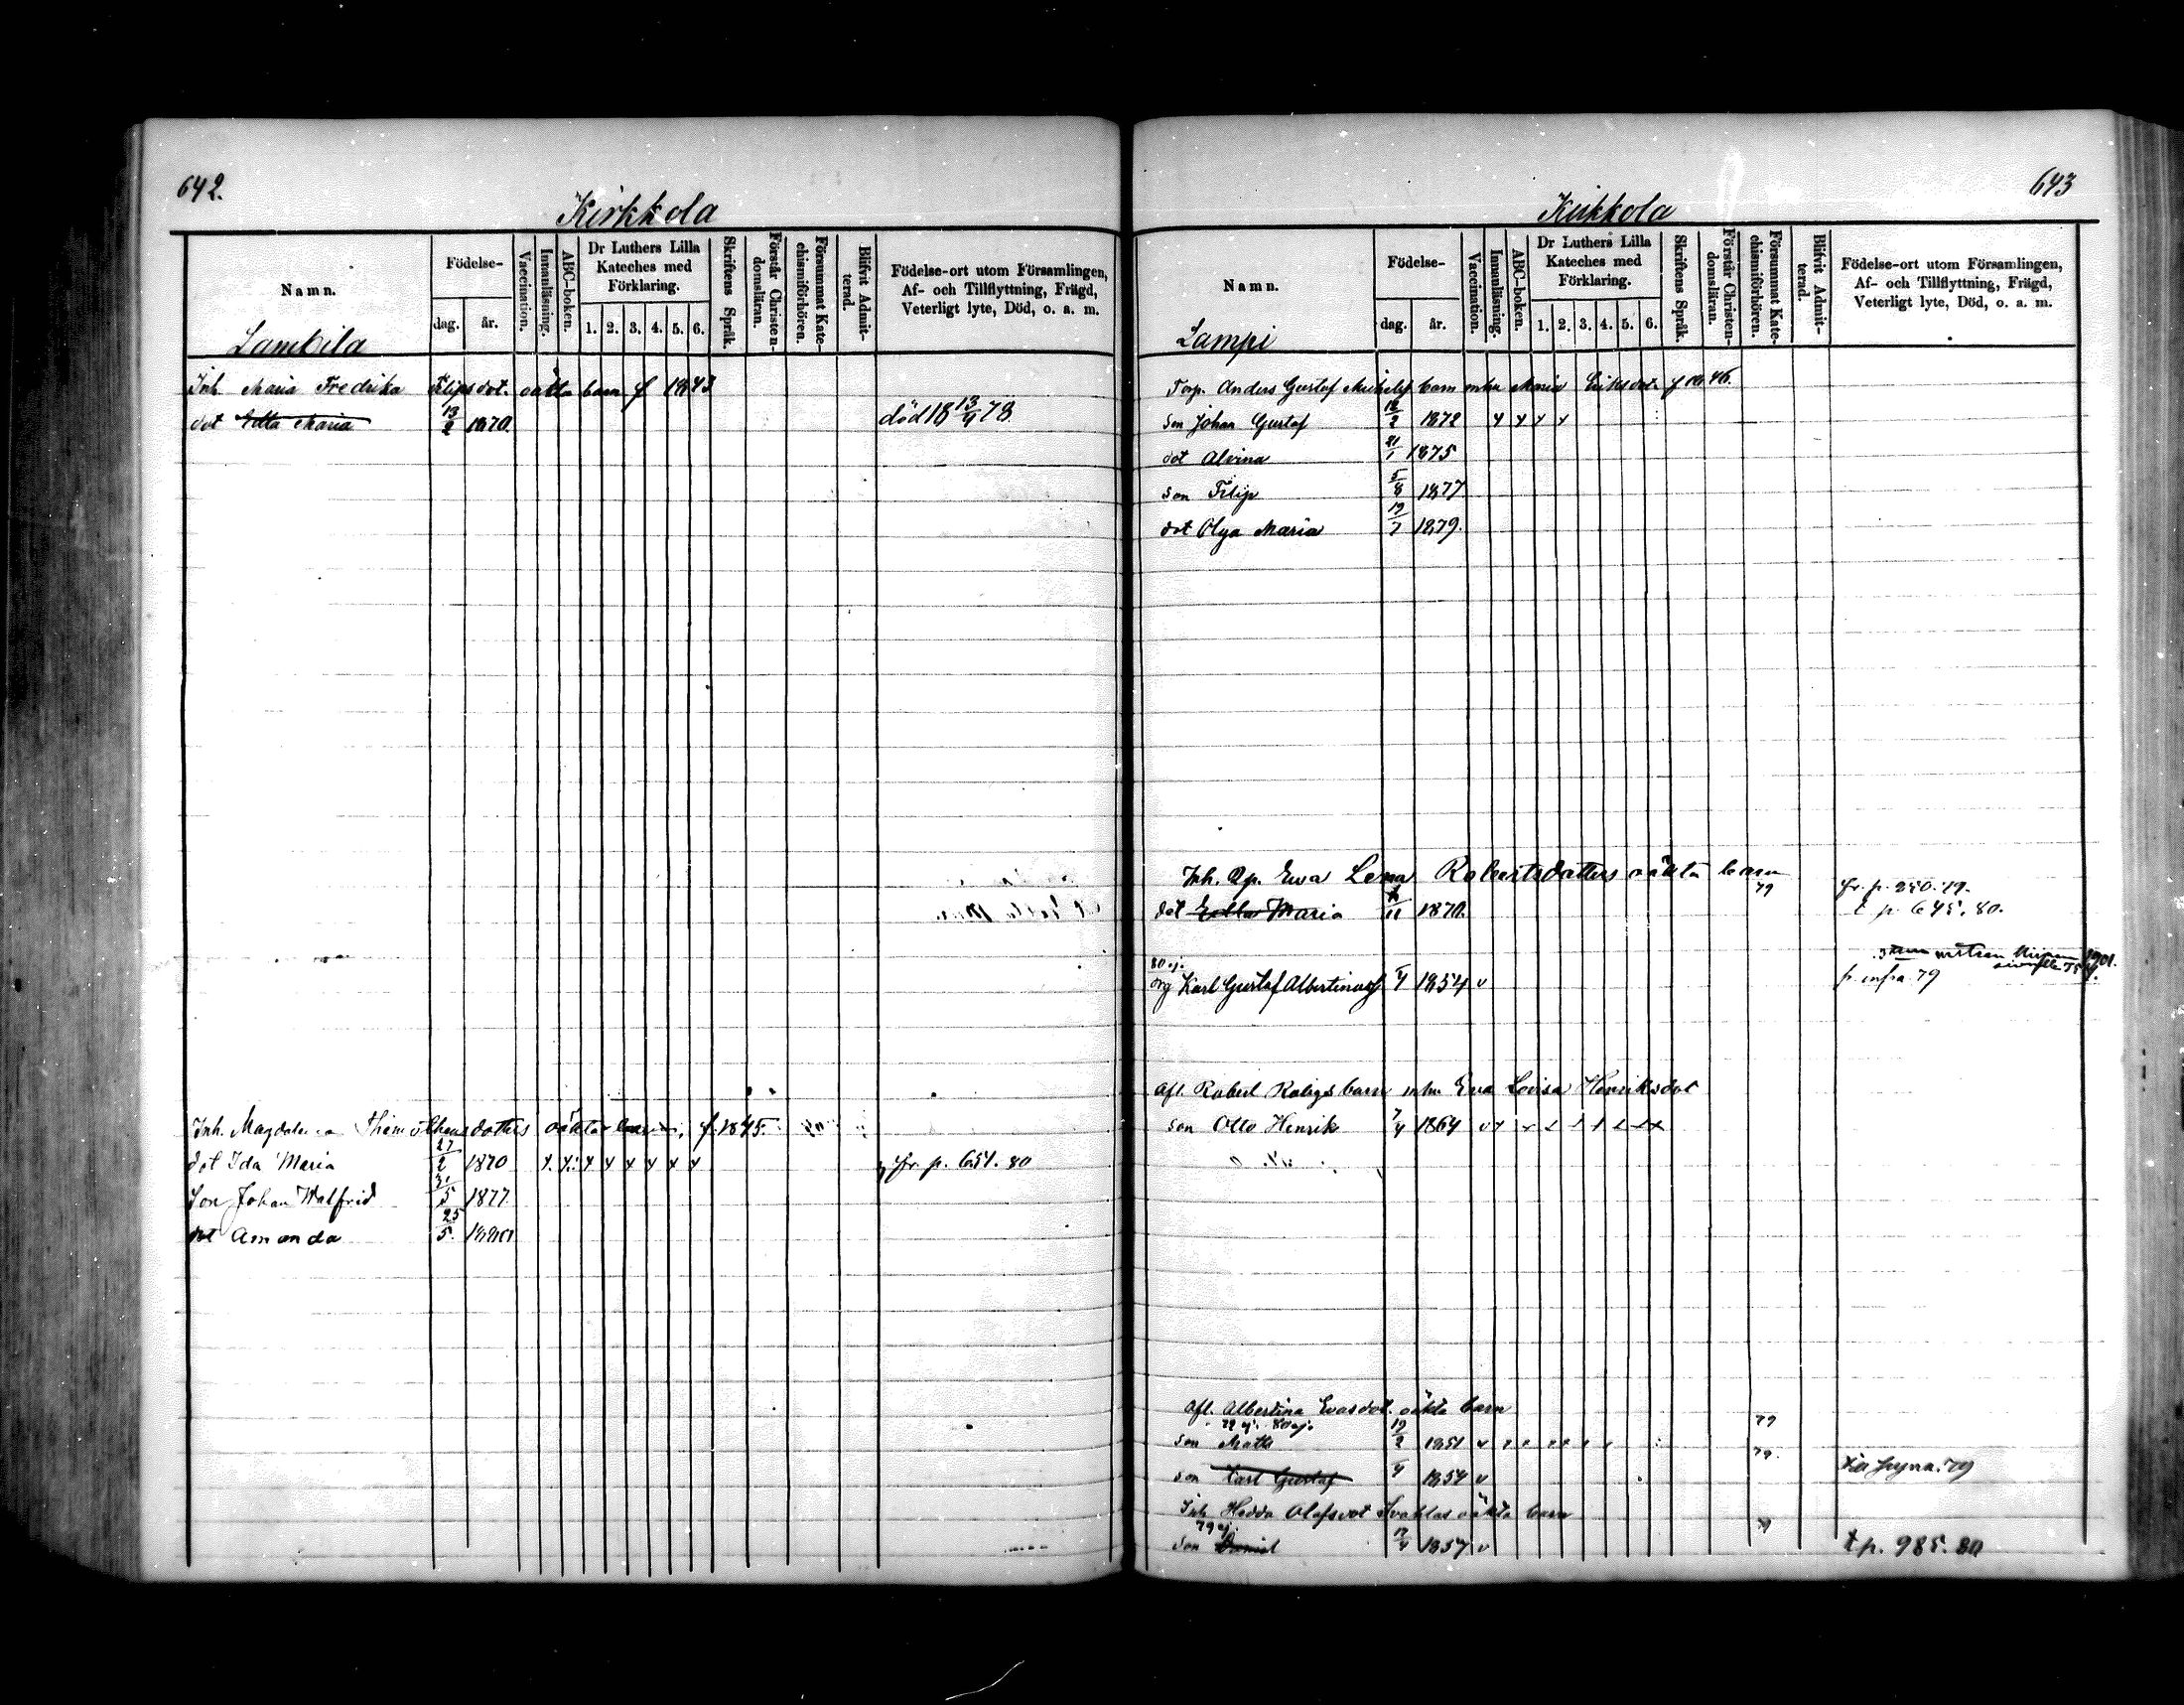 642.
Kirkkola
Namn.
Födelse-
dag.
år.
Vaccination.
Innanläsning.
ABC-boken.
Dr Luthers Lilla
Kateches med
Förklaring.
1. 2. 3. 4. 5. 6.
Skriftens Språk.
Förstår Christen-
domsläran.
Försummat Kate-
chismiförhören.
Blifvit Admit-
terad.
Födelse-ort utom Församlingen,
Af- och Tillflyttning, Frägd,
Veterligt lyte, Död, o. a. m.
Lambila
Inh. Maria Fredrika Filipsdot. oäkta barn f 1843
dot Maria 13/2 1870. död 18 13/9 78.
Inh. Magdalena oäkta barn, f. 1845.
dot Ida Maria 27/2 1870 fr. p. 651. 80
Son Johan Walfrid 5 1877.
dot Amanda 25/5 1880
643
Kirkkola
Namn.
Födelse-
dag.
år.
Vaccination.
Innanläsning.
ABC-boken.
Dr Luthers Lilla
Kateches med
Förklaring.
1. 2. 3. 4. 5. 6.
Skriftens Språk.
Förstår Christen-
domsläran.
Försummat Kate-
chismiförhören.
Blifvit Admit-
terad.
Födelse-ort utom Församlingen,
Af- och Tillflyttning, Frägd,
Veterligt lyte, Död, o. a. m.
Lampi
Torp. Anders Gustaf barn mhu Maria Eriksdot. f 1846.
son Johan Gustaf 1872
dot Alvina 21/1 1875
son Filip 5/8 1877
dot Olga Maria 19/7 1879.
Inh. Qp. Ewa Lena Robertsdotters oäkta barn
79 fr. p. 250. 79.
dot Maria 1870. t p. 645. 80.
80 ej.
Karl Gustaf 1854 v fr infra 79
1901.
Afl. Robert barn mhu Eva Lovisa Henriksdot
son Otto Henrik 7/4 1864
Afl. Albertina Evasdot. oäkta barn
79 ej. 80 ej. 79
son Matts 19/2 1851
79.
son Karl Gustaf 1854 v 79
Inh Hedda Olafsdot oäkta barn
79 ej
son Daniel 1857 v t p. 985. 80